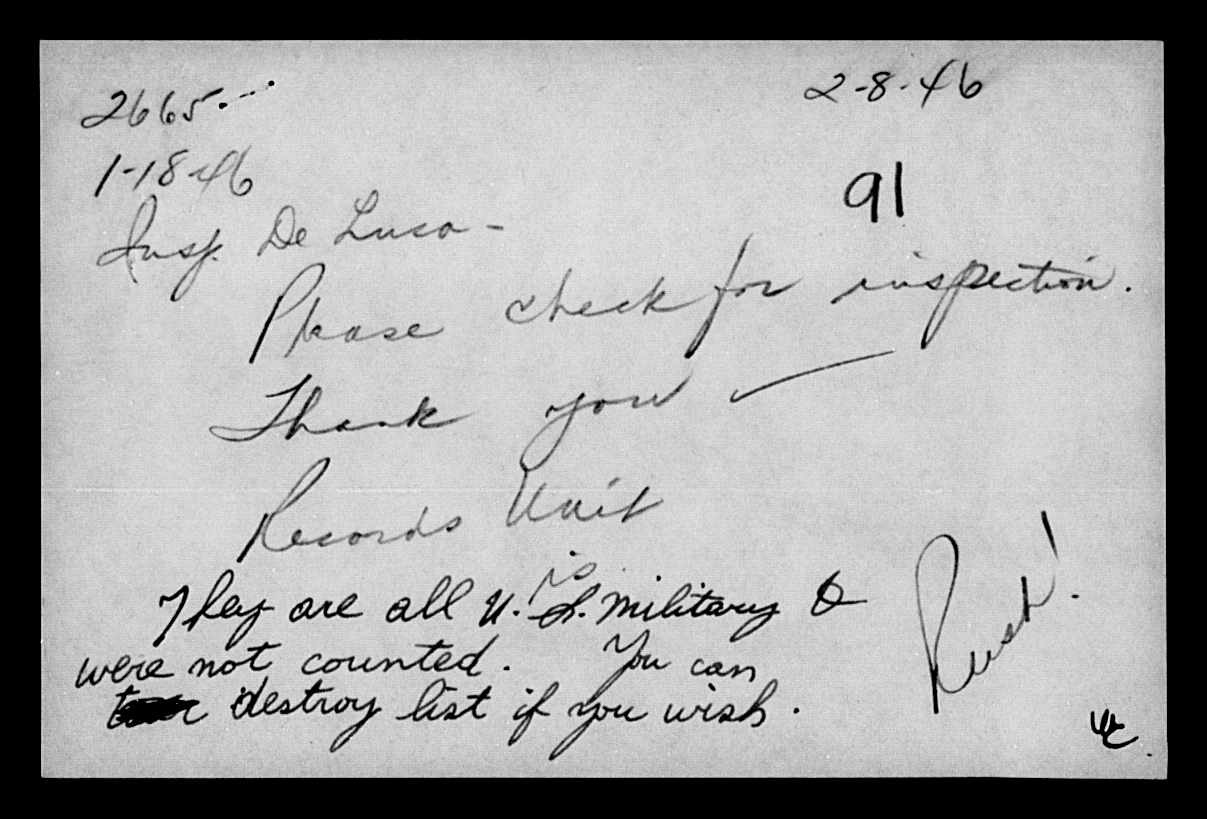 2665.--· 2-8-46
1-18-46 91
Insp. De Luca -
Please check for inspection.
Thank you ✓
Records Unit
They are all U.S. military &
were not counted. You can
destroy list if you wish.
Rush!